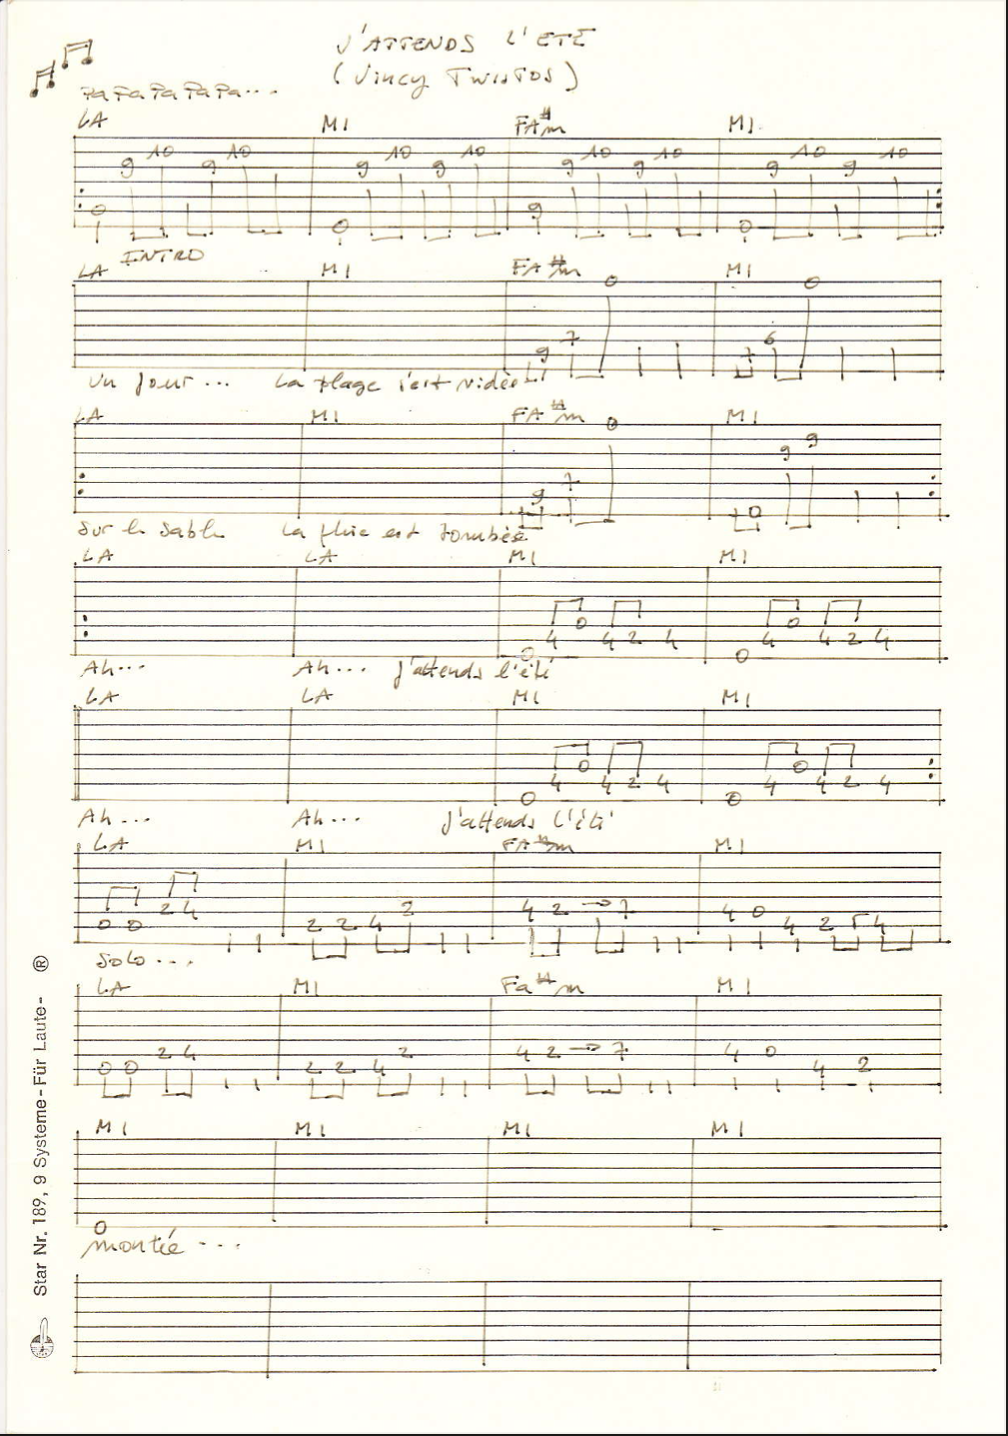 J'ATTENDS L'ETE
(Vincy TWISTOS)
Pa Pa Pa Pa Pa...
LA MI FA#m MI
9 10 9 10 9 10 9 10 9 10 9 10 9 10 9 10
0 0 9 0
INTRO
LA MI FA#m MI
0 0
9 7 7 6
Un jour... La plage s'est vidée
LA MI FA#m MI
0 9 9
9 7 0
Sur le sable La pluie est tombée
LA LA MI MI
0 4 0 4 2 4 0 4 0 4 2 4
Ah... Ah... J'attends l'été
LA LA MI MI
0 4 0 4 2 4 0 4 0 4 2 4
Ah... Ah... J'attends l'été
LA MI FA#m MI
0 0 2 4 2 2 4 2 4 2 → 7 4 0 4 2 4
Solo...
LA MI Fa#m MI
0 0 2 4 2 2 4 2 4 2 → 7 4 0 4 2
MI MI MI MI
0
montée...
Star Nr. 189, 9 Systeme - Für Laute - ®